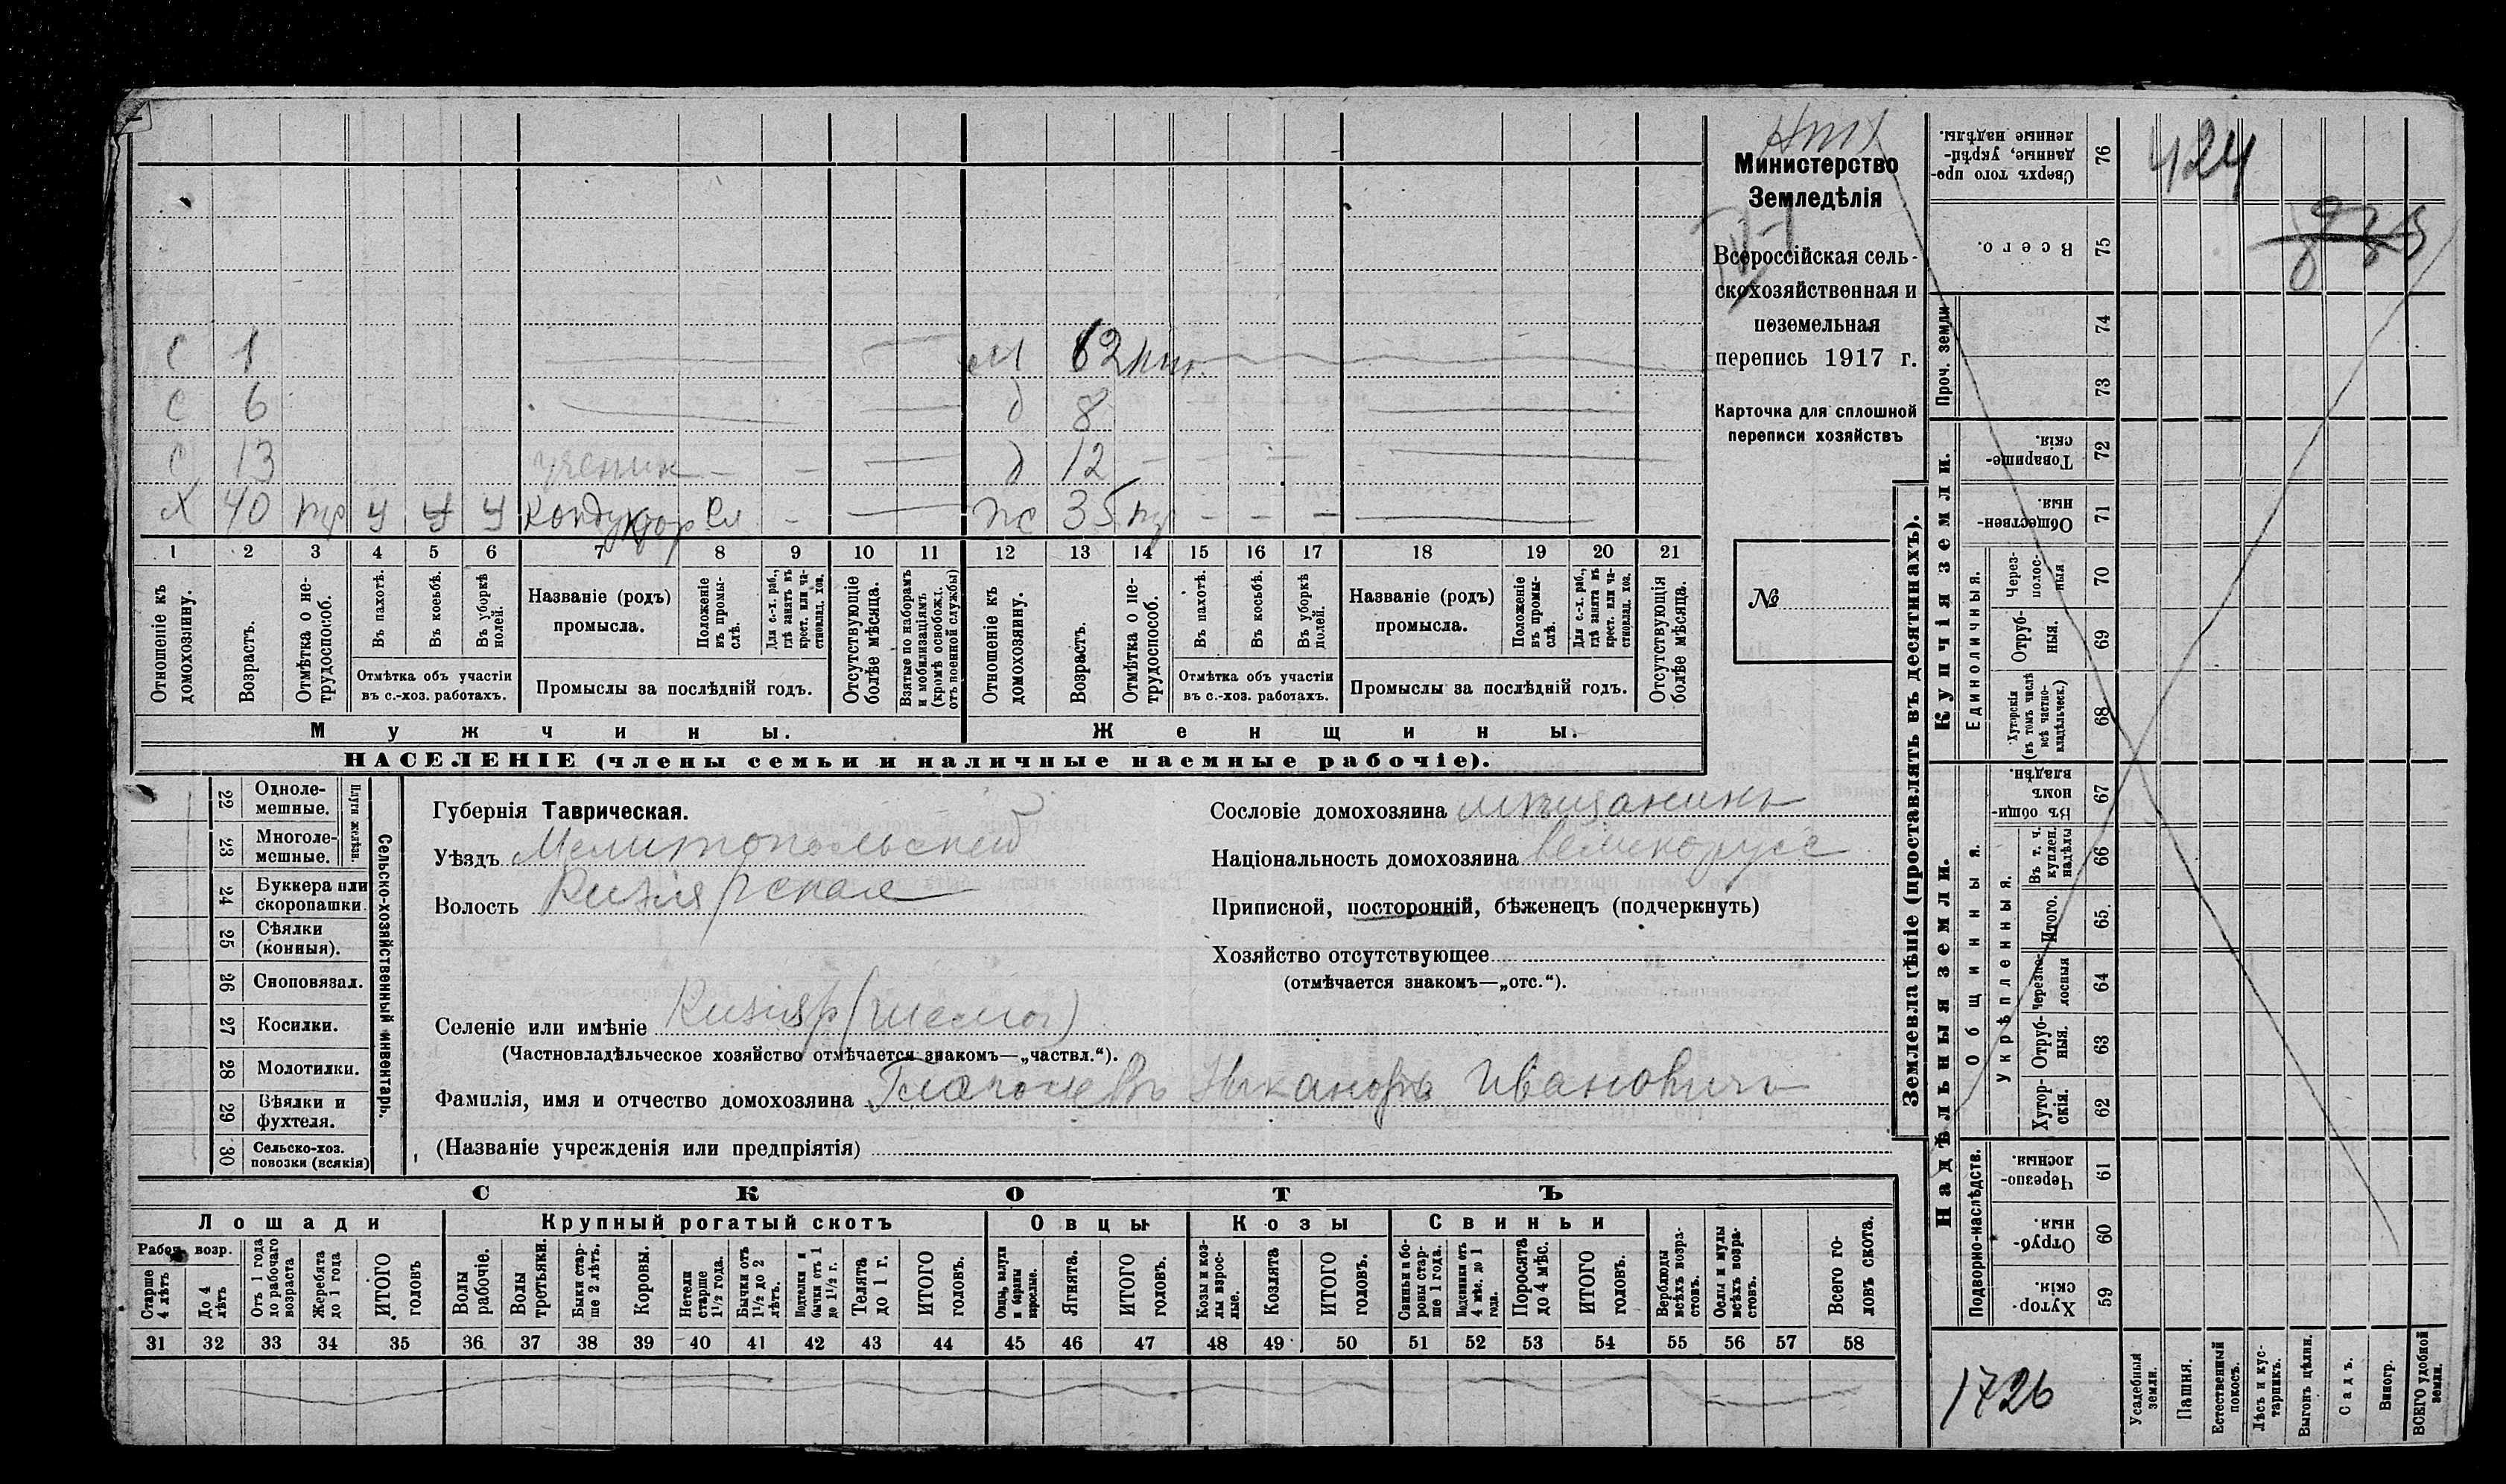 Министерство
Земледѣлія
Всероссійская сель-
скохозяйственная и
поземельная
перепись 1917 г.
Карточка для сплошной
переписи хозяйствъ
№
424
с 1
м 62
с 6
д 8
с 13 ученик
д 12
Х 40 кондуктор
ж 35
1 2 3 4 5 6 7 8 9 10 11 12 13 14 15 16 17 18 19 20 21
Отношеніе къ домохозяину.
Возрастъ.
Отмѣтка о не-трудоспособ.
Въ пахотѣ.
Въ косьбѣ.
Въ уборкѣ полей.
Отмѣтка объ участіи
въ с.-хоз. работахъ.
Названіе (родъ)
промысла.
Положеніе въ промы-слѣ.
Для с.-х. раб., гдѣ занятъ въ крест. или ча-стновлад. хоз.
Промыслы за послѣдній годъ.
Отсутствующіе болѣе мѣсяца.
Взятые по наборамъ и мобилизаціямъ (кромѣ освобожд. отъ военной службы)
Отношеніе къ домохозяину.
Возрастъ.
Отмѣтка о не-трудоспособ.
Въ пахотѣ.
Въ косьбѣ.
Въ уборкѣ полей.
Отмѣтка объ участіи
въ с.-хоз. работахъ.
Названіе (родъ)
промысла.
Положеніе въ промы-слѣ.
Для с.-х. раб., гдѣ занята въ крест. или ча-стновлад. хоз.
Промыслы за послѣдній годъ.
Отсутствующія болѣе мѣсяца.
Мужчины.
Женщины.
НАСЕЛЕНІЕ (члены семьи и наличные наемные рабочіе).
Сельско-хозяйственный инвентарь.
Плуги желѣзн.
22 Одноле-мешные.
23 Многоле-мешные.
24 Буккера или скоропашки
25 Сѣялки (конныя).
26 Сноповязал.
27 Косилки.
28 Молотилки.
29 Вѣялки и фухтеля.
30 Сельско-хоз. повозки (всякія)
Губернія Таврическая.
Уѣздъ Мелитопольский
Волость Кизиярская
Селеніе или имѣніе Кизияр
(Частновладѣльческое хозяйство отмѣчается знакомъ—„частвл.“).
Фамилія, имя и отчество домохозяина Никаноръ Ивановичъ
(Названіе учрежденія или предпріятія)
Сословіе домохозяина мѣщанинъ
Національность домохозяина великорусс
Приписной, посторонній, бѣженецъ (подчеркнуть)
Хозяйство отсутствующее
(отмѣчается знакомъ—„отс.“).
СКОТЪ
Лошади
Крупный рогатый скотъ
Овцы
Козы
Свиньи
Рабоч. возр.
Старше 4 лѣтъ
До 4 лѣтъ
Отъ 1 года до рабочаго возраста
Жеребята до 1 года
ИТОГО головъ
Волы рабочіе.
Волы третьяки.
Быки стар-ше 2 лѣтъ.
Коровы.
Нетели старше 1½ года.
Бычки отъ 1½ до 2 лѣтъ.
Подтелки и бычки отъ 1 до 1½ г.
Телята до 1 г.
ИТОГО головъ.
Овцы, валухи и бараны взрослые.
Ягнята.
ИТОГО головъ.
Козы и коз-лы взрос-лые.
Козлята
ИТОГО головъ.
Свиньи и бо-ровы стар-ше 1 года.
Подсвинки отъ 4 мѣс. до 1 года.
Поросята до 4 мѣс.
ИТОГО головъ.
Верблюды всѣхъ возра-стовъ.
Ослы и мулы всѣхъ возра-стовъ.
Всего го-ловъ скота.
31 32 33 34 35 36 37 38 39 40 41 42 43 44 45 46 47 48 49 50 51 52 53 54 55 56 57 58
Землевладѣніе (проставлять въ десятинахъ).
Надѣльныя земли.
Купчія земли.
Проч. земли
Подворно-наслѣдств.
Общинныя.
Укрѣпленныя.
Единоличныя.
Сверхъ того про-данные, укрѣп-ленные надѣлы. 76
Всего. 75
74
73
Товарище-скія. 72
Обществен-ныя. 71
Через-полос-ныя 70
Отруб-ныя. 69
Хуторскія (въ томъ числѣ всѣ частно-владѣльческ.) 68
Въ общин-номъ владѣн. 67
Въ т. ч. куплен. надѣлы 66
Итого. 65
Черезпо-лосныя 64
Отруб-ныя. 63
Хутор-скія. 62
Черезпо-лосныя. 61
Отруб-ныя. 60
Хутор-скія. 59
1726
Усадебныя земли.
Пашня.
Естественный покосъ.
Лѣсъ и кус-тарникъ.
Выгонъ цѣлин.
Садъ.
Виногр.
ВСЕГО удобной земли.